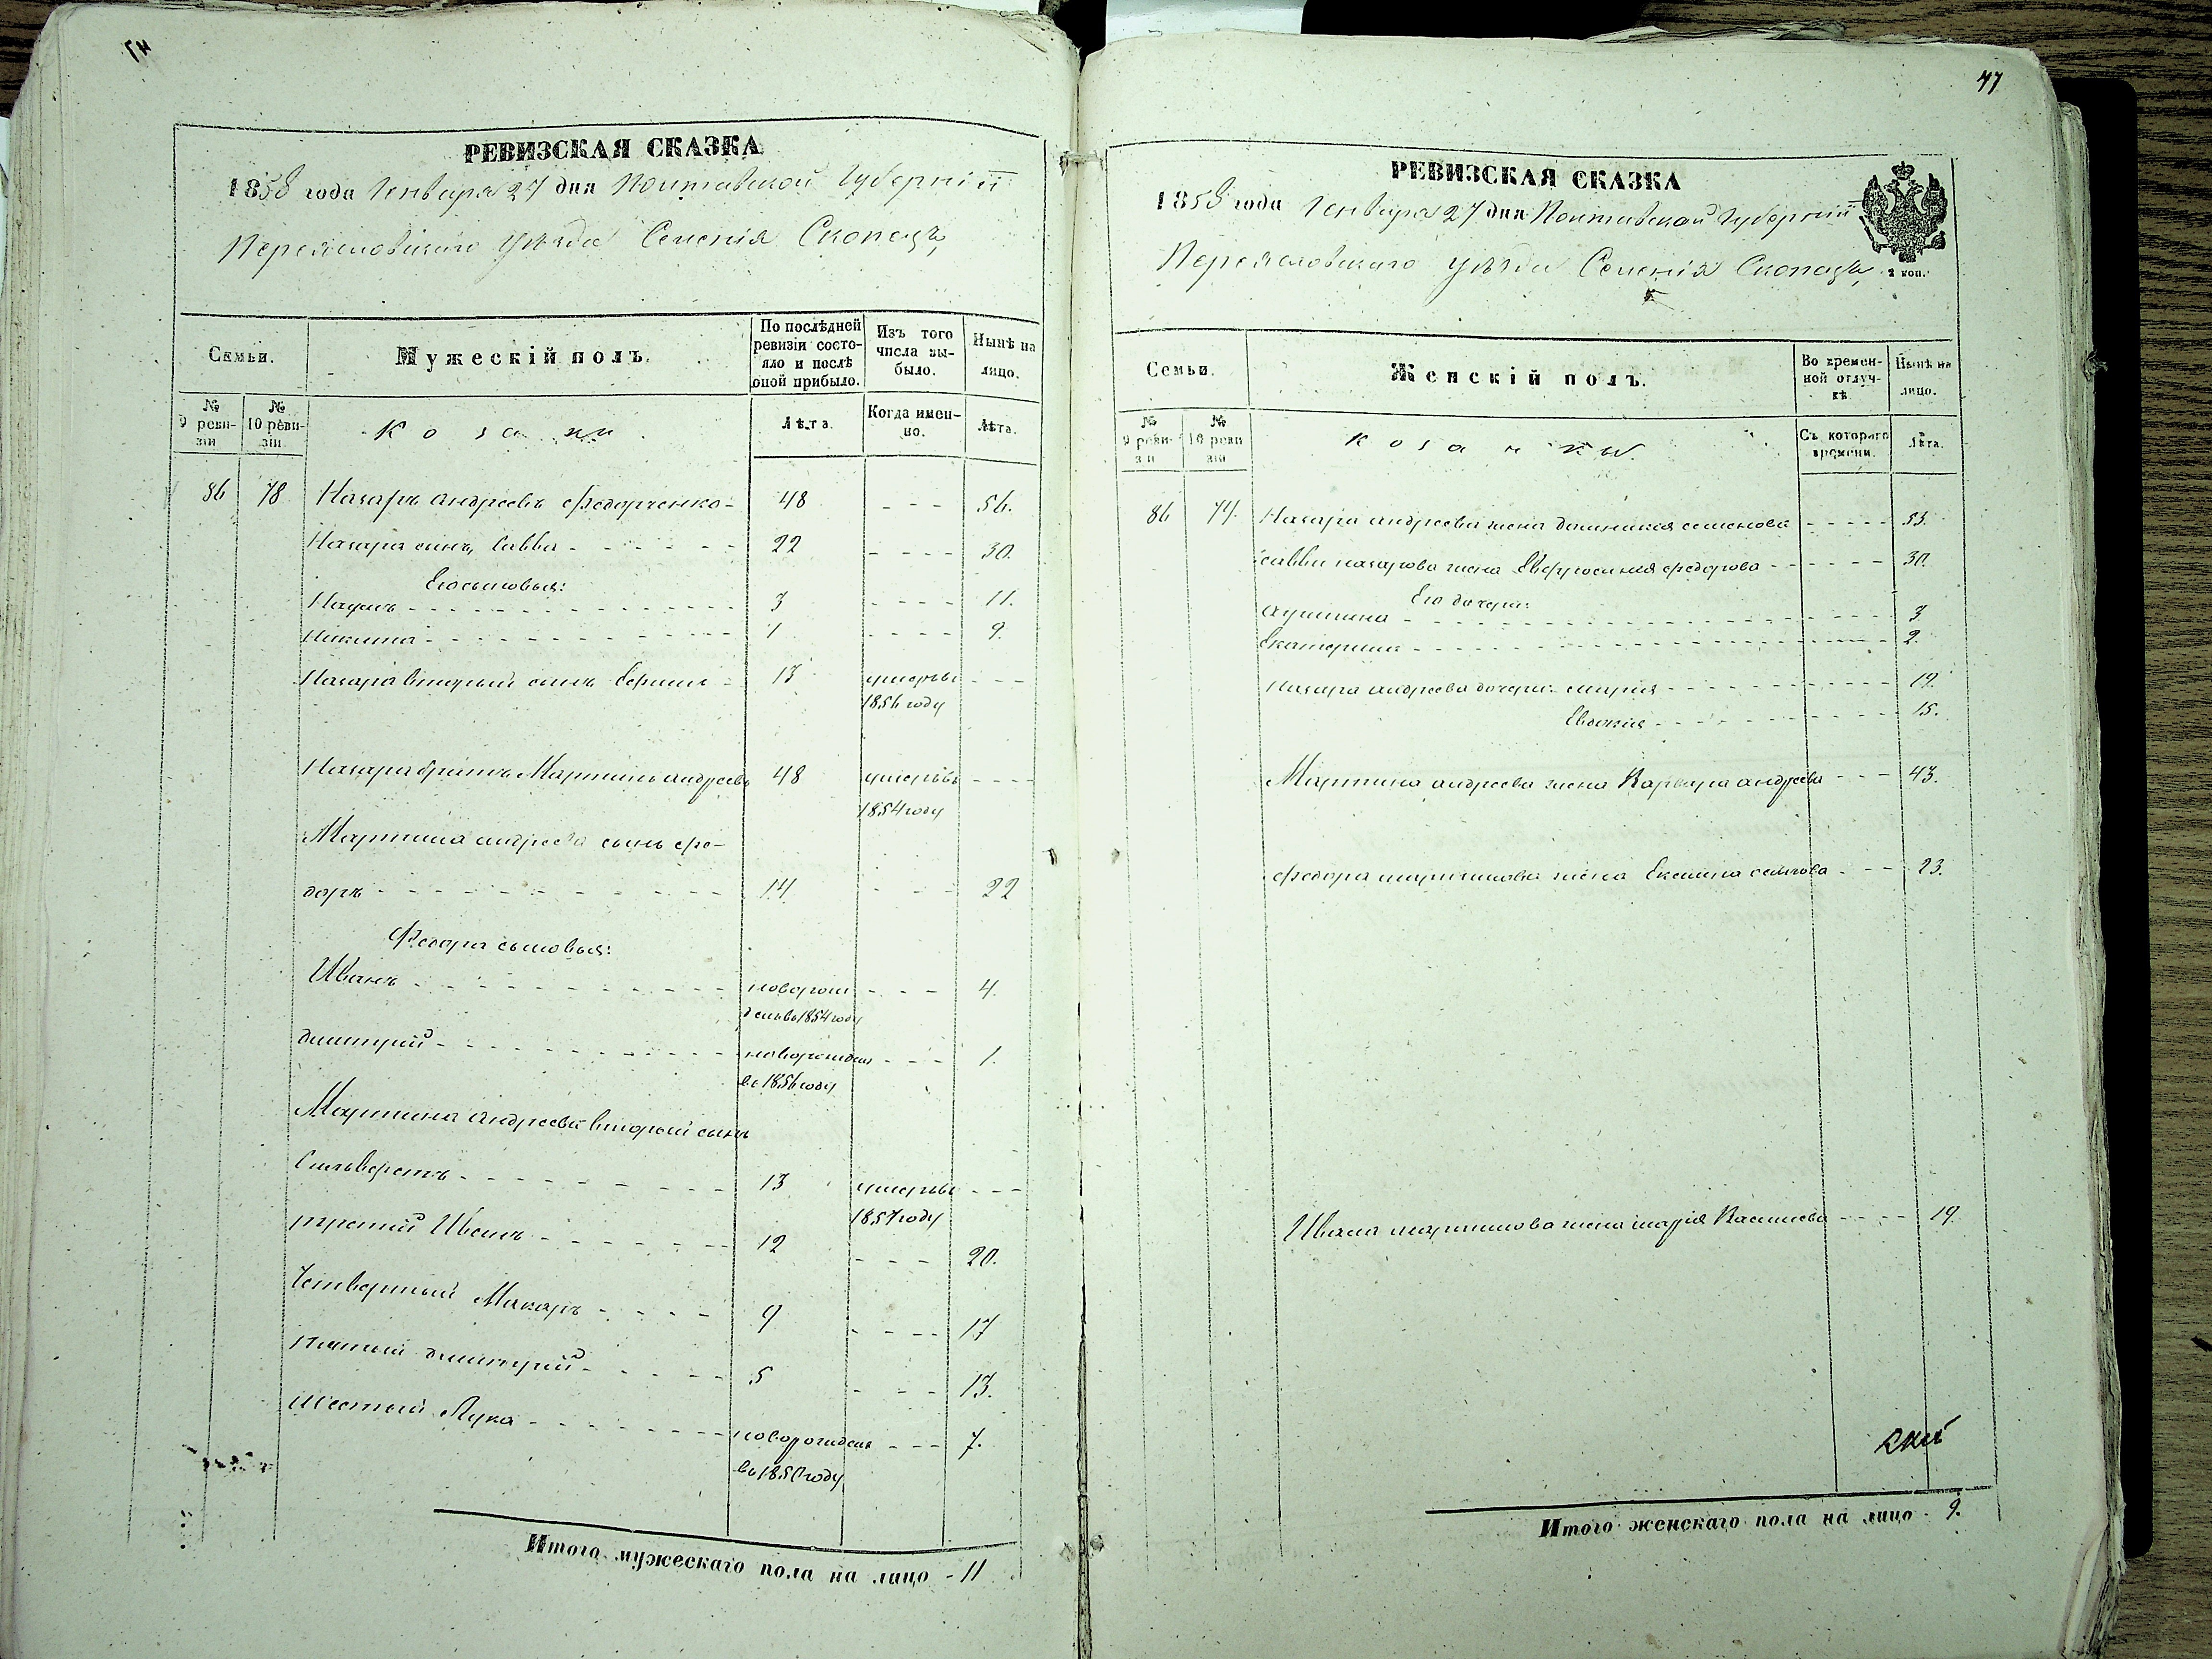 РЕВИЗСКАЯ СКАЗКА
1858 года Генваря 27 дня Полтавской Губерніи
Переясловскаго уѣзда Селенія Скопецъ
Семьи.
Мужескій полъ.
По послѣдней ревизіи состояло и послѣ оной прибыло.
Изъ того числа выбыло.
Нынѣ на лицо.
№ 9 ревизіи
№ 10 ревизіи
Козаки
Лѣта.
Когда именно.
Лѣта.
86 78 Назаръ андреевъ Федорченко - 48 - - - 56.
Назара сынъ, Савва - - - - - - 22 - - - - 30.
Его сыновья:
Наумъ - - - - - - - - 3 - - - - 11.
Никита - - - - - - - - 1 - - - - 9.
Назара вторый сынъ 13 умерь въ - - -
1856 году
Назара братъ Мартинъ андреевъ 48 умеръ въ - - - -
1854 году
Мартина андреева сынъ Фе-
доръ - - - - - - - - 14 - - - 22
Федора сыновья:
Иванъ - - - - - - - - новорож - - - 4.
денъ въ 1854 году
Димитрий - - - - - - - - новорожден - - - 1.
въ 1856 году
Мартина андреева вторый сынъ
Сильверстъ - - - - - - - 13 умеръ въ - - -
1857 году
третий Иванъ - - - - - - 12 - - - 20.
Четвертый Макаръ - - - - 9 - - - - 17
Пятый Димитрий - - - - - 5 - - - 13.
Шестый Лука - - - - - - - новорожден - - - 7.
въ 1850 году
Итого мужескаго пола на лицо - 11
77
РЕВИЗСКАЯ СКАЗКА
1858 года Генваря 27 дня Полтавской Губерніи
Переясловскаго уѣзда Селенія Скопецъ
2 коп.
Семьи.
Женскій полъ.
Во временной отлучкѣ
Нынѣ на лицо.
№ 9 ревизіи
№ 10 ревизіи
козачки
Съ котораго времени.
Лѣта.
86 Назара андреева жена домникия семенова - - - - - 53.
Саввы назарова жена Евфросиния федорова - - - - - - 30.
Его дочери:
- - - - - - - - 3
Екатерина - - - - - - - - 2.
Назара андреева дочери: мария - - - - - - - - 19.
Евдокия - - - - - - - - 15.
Мартина андреева жена Варвара андреева - - - 43.
Федора мартинова жена - - - 23.
Ивана мартинова жена марія - - - - 19.
Итого женскаго пола на лицо - 9.